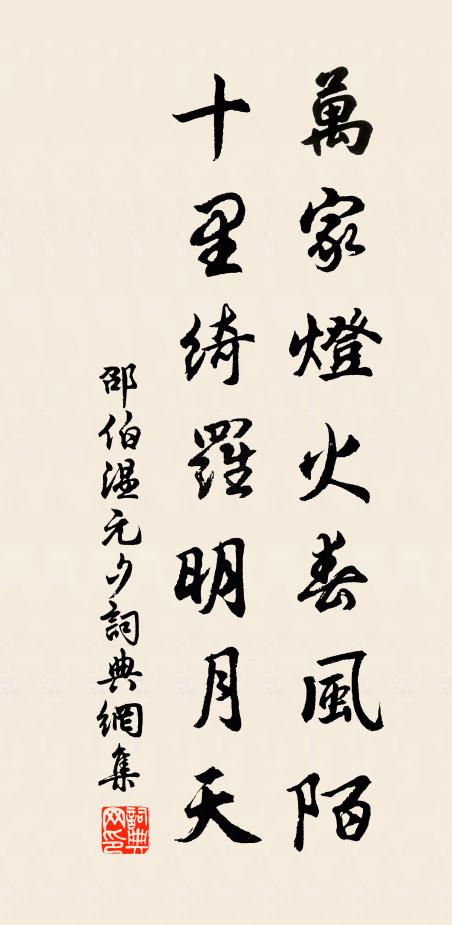 萬家燈火春風陌
十里綺羅明月天
邵伯溫元夕詞典網集
詞典網印